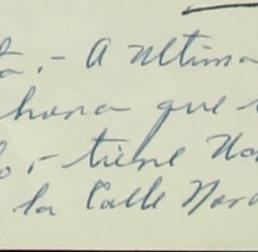 ta.- A ultima
hora que
lo,- tiene
la Calle Nor